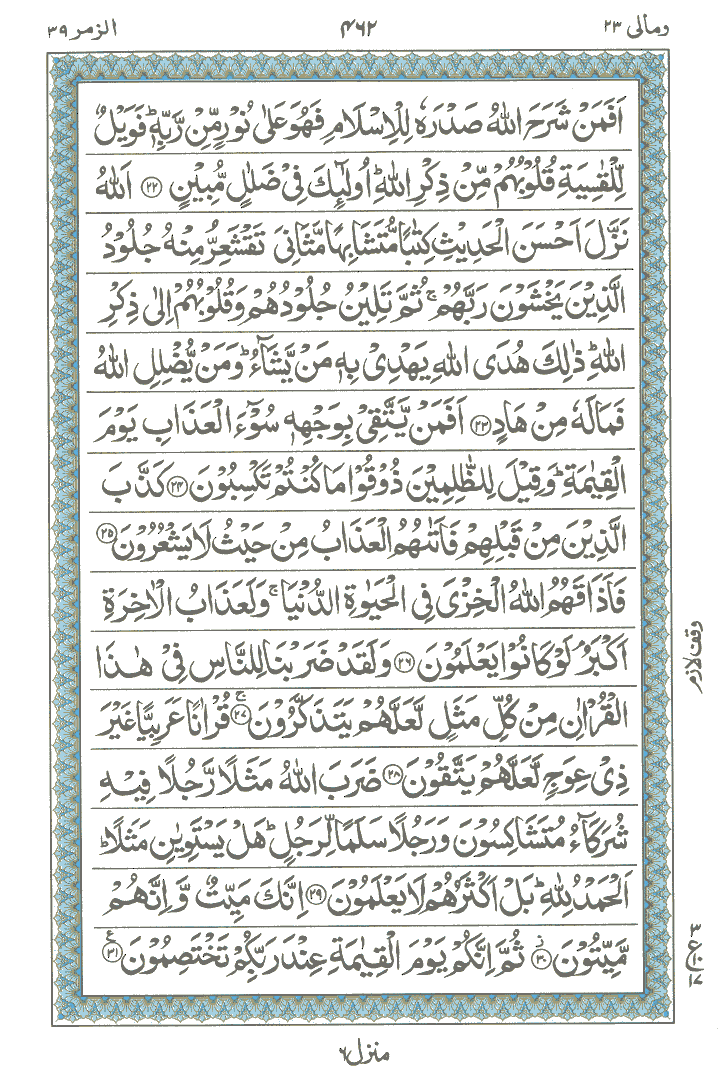 ومالی ۲۳
۴۶۲
الزمر ۳۹
اَفَمَنْ شَرَحَ اللّٰهُ صَدْرَهٗ لِلْاِسْلَامِ فَهُوَ عَلٰى نُوْرٍ مِّنْ رَّبِّهٖ ؕ فَوَيْلٌ
لِّلْقٰسِيَةِ قُلُوْبُهُمْ مِّنْ ذِكْرِ اللّٰهِ ؕ اُولٰٓئِكَ فِىْ ضَلٰلٍ مُّبِيْنٍ ۲۲ اَللّٰهُ
نَزَّلَ اَحْسَنَ الْحَدِيْثِ كِتٰبًا مُّتَشَابِهًا مَّثَانِىَ تَقْشَعِرُّ مِنْهُ جُلُوْدُ
الَّذِيْنَ يَخْشَوْنَ رَبَّهُمْ ۚ ثُمَّ تَلِيْنُ جُلُوْدُهُمْ وَقُلُوْبُهُمْ اِلٰى ذِكْرِ
اللّٰهِ ؕ ذٰلِكَ هُدَى اللّٰهِ يَهْدِىْ بِهٖ مَنْ يَّشَآءُ ؕ وَمَنْ يُّضْلِلِ اللّٰهُ
فَمَا لَهٗ مِنْ هَادٍ ۲۳ اَفَمَنْ يَّتَّقِىْ بِوَجْهِهٖ سُوْٓءَ الْعَذَابِ يَوْمَ
الْقِيٰمَةِ ؕ وَقِيْلَ لِلظّٰلِمِيْنَ ذُوْقُوْا مَا كُنْتُمْ تَكْسِبُوْنَ ۲۴ كَذَّبَ
الَّذِيْنَ مِنْ قَبْلِهِمْ فَاَتٰٮهُمُ الْعَذَابُ مِنْ حَيْثُ لَا يَشْعُرُوْنَ ۲۵
فَاَذَاقَهُمُ اللّٰهُ الْخِزْىَ فِى الْحَيٰوةِ الدُّنْيَا ۚ وَلَعَذَابُ الْاٰخِرَةِ
اَكْبَرُ ۘ لَوْ كَانُوْا يَعْلَمُوْنَ ۲۶ وَلَقَدْ ضَرَبْنَا لِلنَّاسِ فِىْ هٰذَا
وقف لازم
الْقُرْاٰنِ مِنْ كُلِّ مَثَلٍ لَّعَلَّهُمْ يَتَذَكَّرُوْنَ ۚ ۲۷ قُرْاٰنًا عَرَبِيًّا غَيْرَ
ذِىْ عِوَجٍ لَّعَلَّهُمْ يَتَّقُوْنَ ۲۸ ضَرَبَ اللّٰهُ مَثَلًا رَّجُلًا فِيْهِ
شُرَكَآءُ مُتَشَاكِسُوْنَ وَرَجُلًا سَلَمًا لِّرَجُلٍ ؕ هَلْ يَسْتَوِيٰنِ مَثَلًا ؕ
اَلْحَمْدُ لِلّٰهِ ۚ بَلْ اَكْثَرُهُمْ لَا يَعْلَمُوْنَ ۲۹ اِنَّكَ مَيِّتٌ وَّ اِنَّهُمْ
مَّيِّتُوْنَ ز ۳۰ ثُمَّ اِنَّكُمْ يَوْمَ الْقِيٰمَةِ عِنْدَ رَبِّكُمْ تَخْتَصِمُوْنَ ع ۳۱
۳ ع ۱۷
منزل ۶